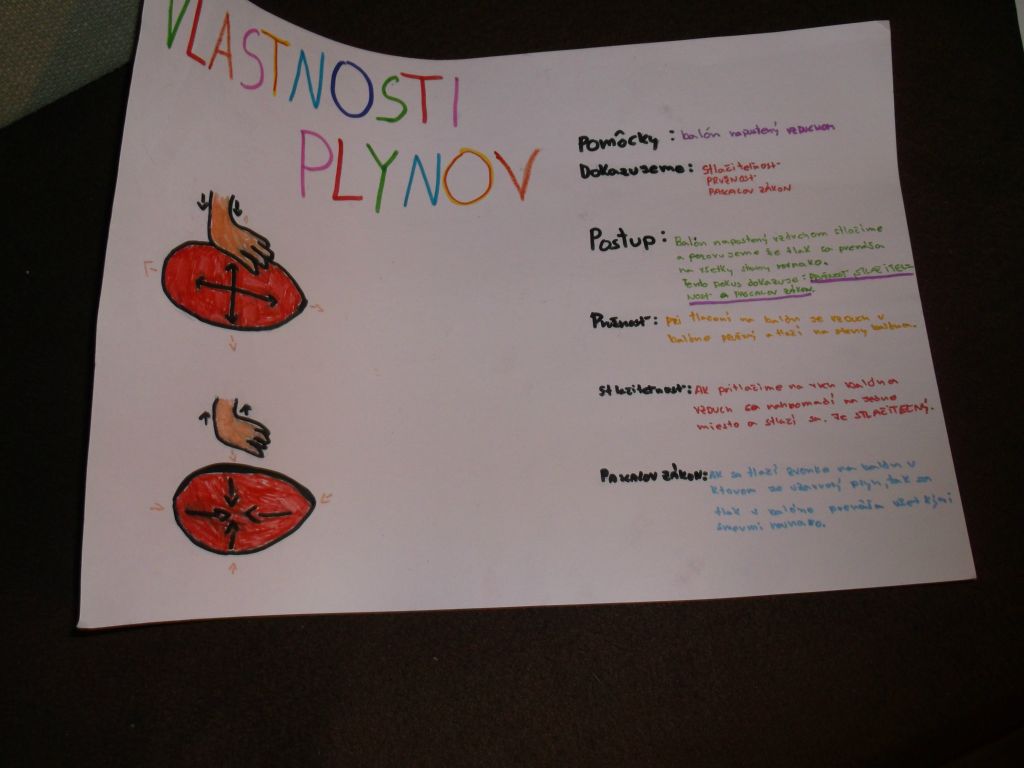 VLASTNOSTI
PLYNOV
Pomôcky: balón napustený vzduchom
Dokazujeme: Stlačiteľnosť
PRUŽNOSŤ
PASCALOV ZÁKON
Postup: Balón napustený vzduchom stlačíme
a pozorujeme že tlak sa prenáša
na všetky steny rovnako.
Tento pokus dokazuje: PRUŽNOSŤ STLAČITEĽ
NOSŤ a PASCALOV ZÁKON.
Pružnosť: Pri tlačení na balón sa vzduch v
balóne pružný a tlačí na steny balóna.
Stlačiteľnosť: Ak pritlačíme na vrch balóna
vzduch sa nahromadí na jedno
miesto a stlačí sa. Je STLAČITEĽNÝ.
PASCALOV ZÁKON: Ak sa tlačí zvonka na balón v
ktorom je uzavretý plyn, tak sa
tlak v balóne prenáša všetkými
smermi rovnako.